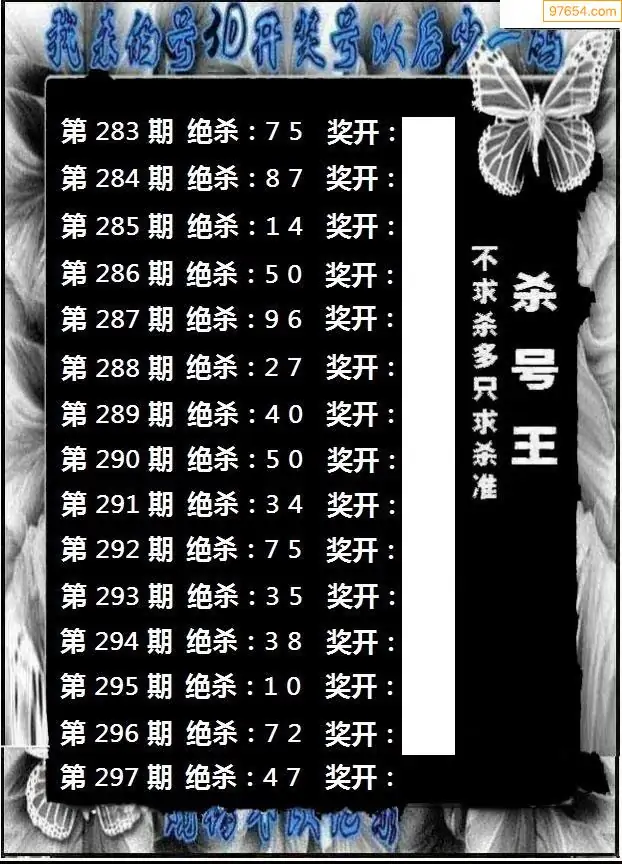 97654.com
我杀的号3D开奖号以后少一码
第 283 期 绝杀：7 5 奖开：
第 284 期 绝杀：8 7 奖开：
第 285 期 绝杀：1 4 奖开：
第 286 期 绝杀：5 0 奖开：
第 287 期 绝杀：9 6 奖开：
第 288 期 绝杀：2 7 奖开：
第 289 期 绝杀：4 0 奖开：
第 290 期 绝杀：5 0 奖开：
第 291 期 绝杀：3 4 奖开：
第 292 期 绝杀：7 5 奖开：
第 293 期 绝杀：3 5 奖开：
第 294 期 绝杀：3 8 奖开：
第 295 期 绝杀：1 0 奖开：
第 296 期 绝杀：7 2 奖开：
第 297 期 绝杀：4 7 奖开：
杀号王
不求杀多只求杀准